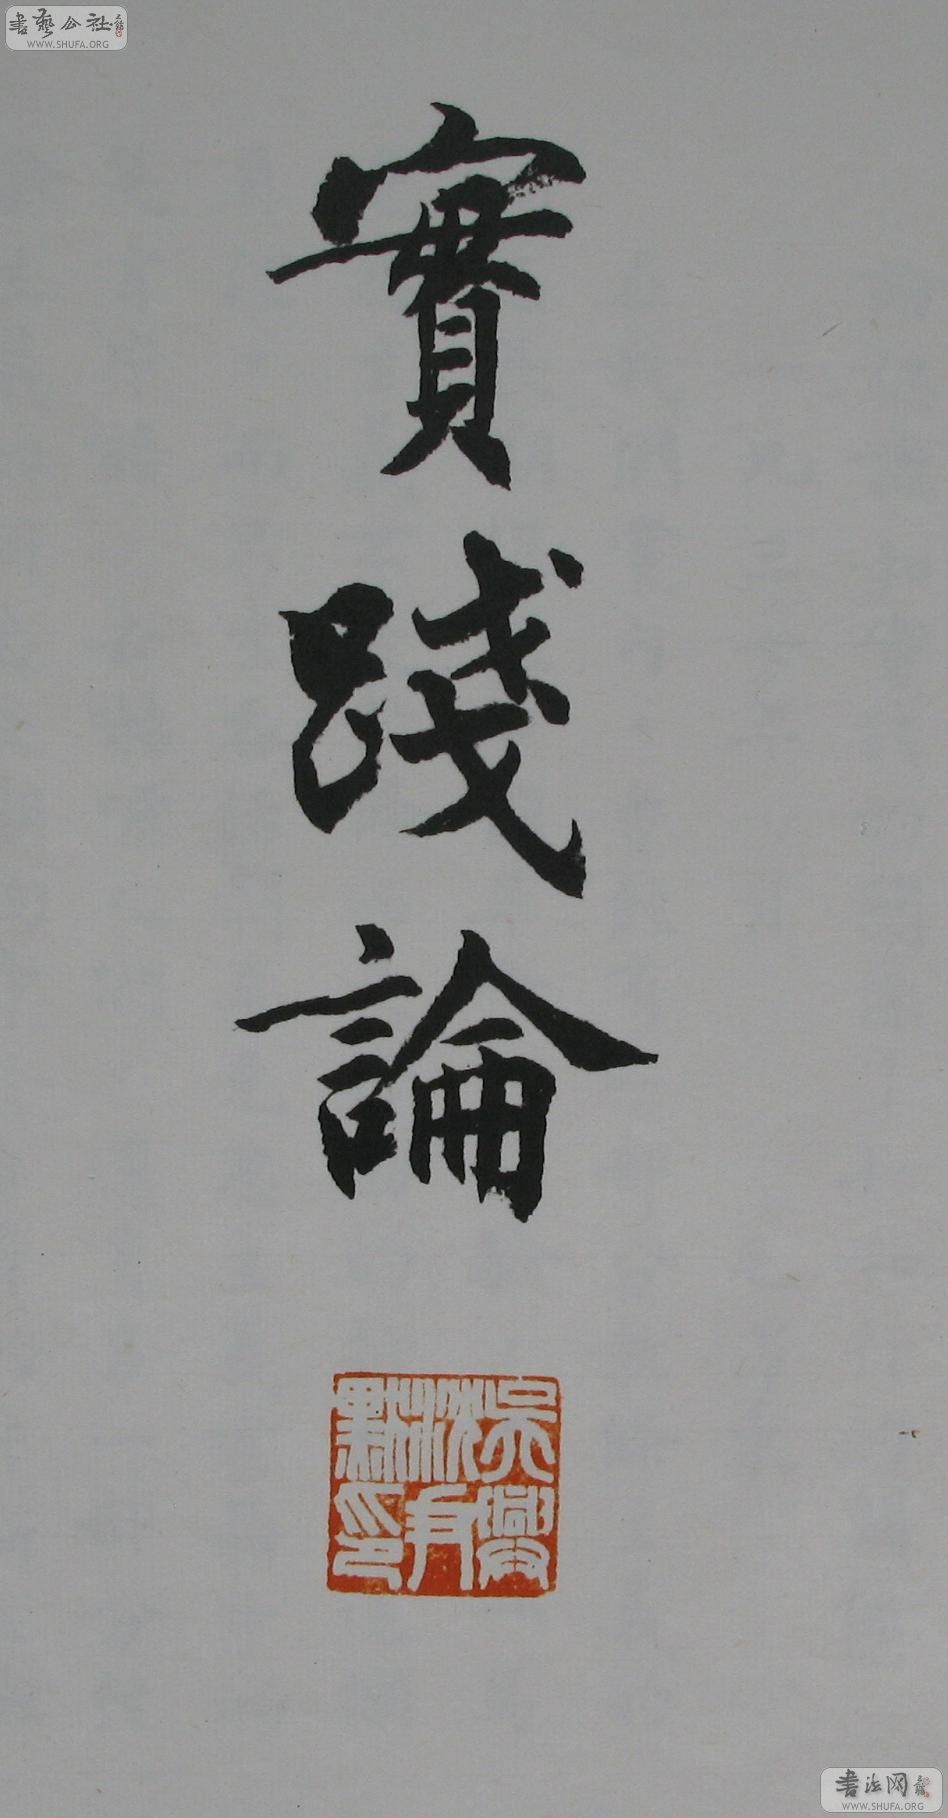 書藝公社
WWW.SHUFA.ORG
實踐論
吳興
沈尹
默印
書法网
WWW.SHUFA.ORG